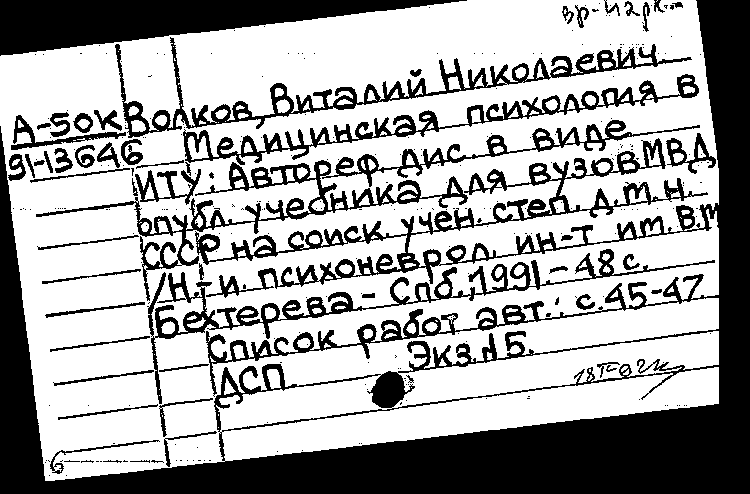 А-50к Волков, Виталий Николаевич.
91-13646 Медицинская психология в
ИТУ: Автореф. дис. в виде
опубл. учебника для вузов МВД
СССР на соиск. учен. степ. д.м.н.
/Н.-и. психоневрол. ин-т им. В.М
Бехтерева.- Спб., 1991.- 48 с.
Список работ авт.: с.45-47
ДСП. Экз.N5.
6